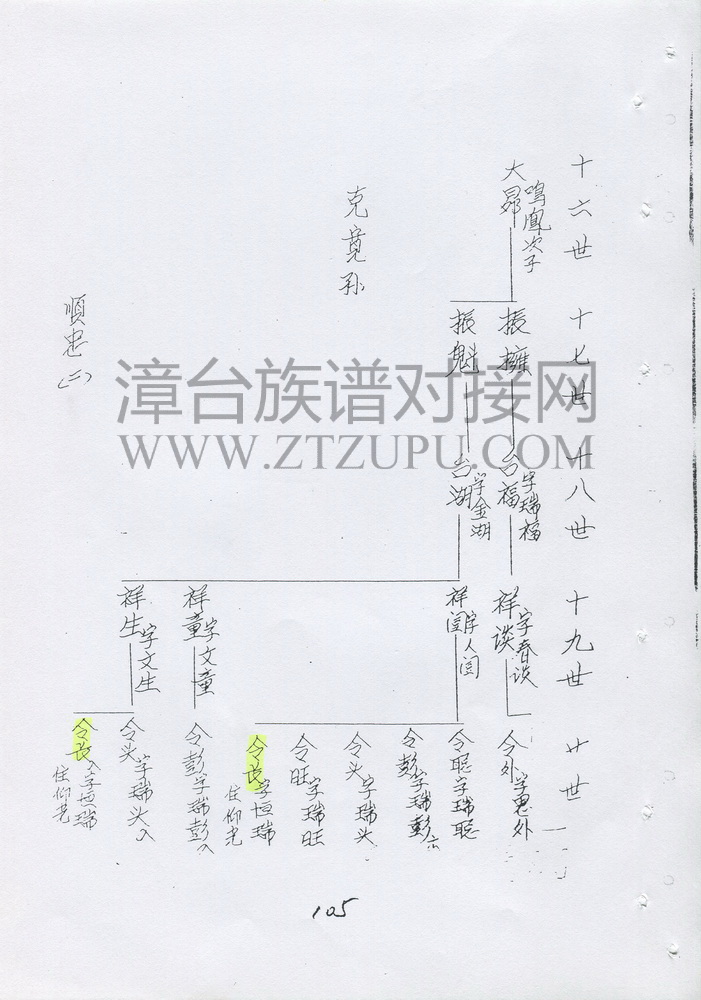 十六世
大昴
鸣凰次子
克竟孙
顺忠(二)
十七世
振擁
振魁
十八世
台福
字瑞福
台湖
字金湖
十九世
祥谈
字春谈
祥闰
字人闰
祥童
字文童
祥生
字文生
廿世
令外
字思外
令聪字瑞聪
令彭字瑞彭
令头字瑞头
令旺字瑞旺
令长字恒瑞
住仰光
令彭字瑞彭入
令头字瑞头入
令长入字恒瑞
住仰光
105
漳台族谱对接网
WWW.ZTZUPU.COM